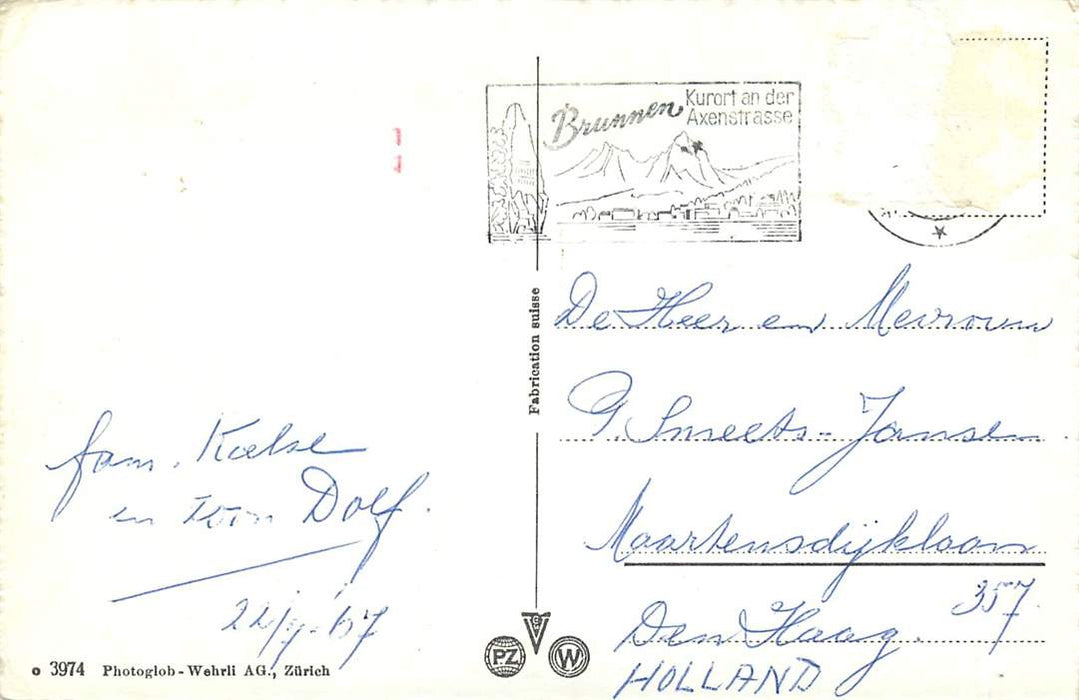 Brunnen
Kurort an der
Axenstrasse
Fabrication suisse
De Heer en Mevrouw
G Smeets-Jansen
Maartensdijklaan
357
Den Haag.
HOLLAND
fam.
en Toon Dolf.
o 3974 Photoglob-Wehrli AG., Zürich
PZ
W